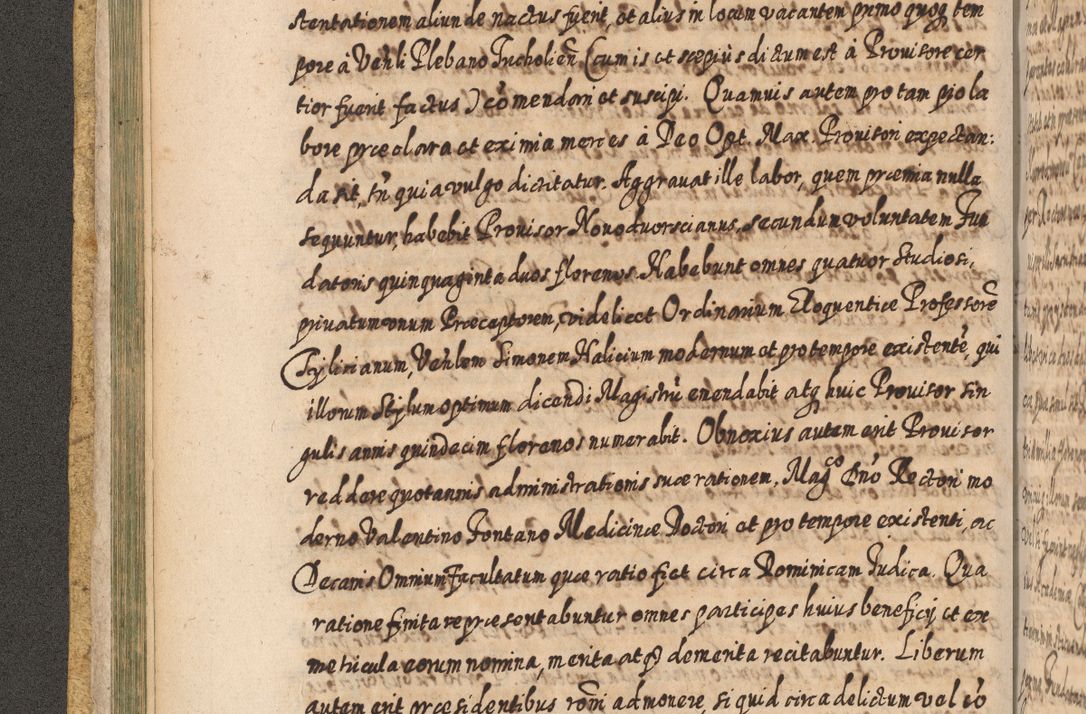 stentationem aliunde nactus fuerit, et alius in locum vacantem primo quoq; tem
pore à Veńli Plebano Tucholień (cum is ut sæpiùs dictum est à Provisore cer
tior fuerit factus) cōmendari et suscipi. Quamvis autem pro tam pio la
bore præclara et eximia merces à Deo Opt. Max. Provisori expectan:
da sit, tn̄ quia vulgo dictitatur. Aggravat ille labor, quem præmia nulla
sequuntur, habebit Provisor Novodvorscianus, secundum voluntatem Fun
datoris quinquaginta duos florenos. Habebunt omnes quatuor studiosi,
privatum unum Præceptorem, videlicet Ordinarium Eloquentiæ Professorē
Tylicianum, Veńlem Simonem Halicium modernum et pro tempore existentē, qui
illorum stylum optimum dicendi Magistrū emendabit atq; huic Provisor sin
gulis annis quindecim florenos numerabit. Obnoxius autem erit Provisor
reddere quotannis administrationis suæ rationem, Mag͠co Dn̄o Rectori mo
derno Valentino Fontano Medicinæ Doctori et pro tempore existenti, ac
Decanis Omnium Facultatum quæ ratio fiet circa Dominicam Judica. Qua
ratione finita repræsentabuntur omnes participes huius beneficij et ex
metricula eorum nomina, merita atq; demerita recitabuntur. Liberum
autem erit præsidentibus rōni admonere, si quid circa delictum vel cō